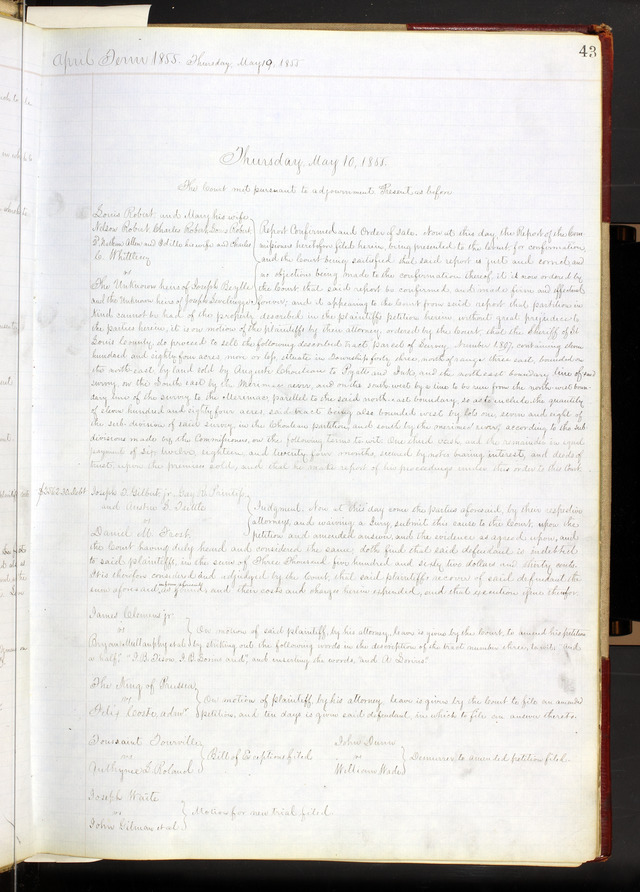 43
April Term 1855. Thursday, May 10, 1855
Thursday, May 10, 1855.
The Court met pursuant to adjournment Present as before
Louis Robert and Mary his wife
Nelson Robert Charles Robert Robert
Allen and his wife and Charles
C. Whittlesey
vs
The Unknown heirs of Joseph
and the Unknown heirs of Joseph
Report Confirmed and Order of sale. Now at this day, the Report of the Com-
missioners heretofore filed herein, being presented to the Court for confirmation,
and the Court being satisfied that said report is just and correct, and
no objection being made to the confirmation thereof, it is now ordered by
the Court that said report be confirmed, and made firm and effectual
forever; and it appearing to the Court from said report that partition in
kind cannot be had of the property described in the plaintiffs petition herein, without great prejudice to
the parties herein, it is on motion of the plaintiffs by their attorney, ordered by the Court, that the Sheriff of St
Louis County, do proceed to sell the following described tract parcel of Survey, Number containing eleven
hundred and eighty four acres, more or less, situate in Township forty three, north of range three east, bounded on
the north east, by land sold by Auguste Chouteau to and the north east boundary line of said
survey, on the South east by the Merimac river, and on the south west by a line to be run from the north west boun-
dary line of the survey to the Merimac parallel to the said north east boundary, so as to include the quantity
of eleven hundred and eighty four acres, said tract being also bounded west by lots one, seven and eight of
the sub division of said survey, in the Chouteau partition and south by the river, according to the sub
divisions made by the Commissioners, on the following terms to wit: One third cash, and the remainder in equal
payments of six, twelve, eighteen and twenty four months, secured by notes bearing interest, and deeds of
trust, upon the premises sold, and that he make report of his proceedings under this order to this Court.
$3562.30 Debt
Joseph T. Gilbert jr.
and Austin
vs
Daniel M. Frost,
Judgment. Now at this day come the parties aforesaid, by their respective
attorneys, and waiving a Jury, submit this cause to the Court, upon the
petition and amended answer, and the evidence as agreed upon, and
the Court having duly heard and considered the same, doth find that said defendant is indebted
to said plaintiffs, in the sum of Three Thousand five hundred and sixty two dollars and thirty cents.
It is therefore considered and adjudged by the Court, that said plaintiffs recover of said defendant the
sum aforesaid, as found, and their costs and charges herein expended, and that execution issue therefor.
James Clemens jr.
vs
Bryan Mullanphy et al
On motion of said plaintiff, by his attorney, leave is given by the Court, to amend his petition
by striking out the following words in the description of the tract number three, to wit: "and
a half," and inserting the words,
The King of Prussia,
vs
Felix Coste, admr
On motion of plaintiff, by his attorney, leave is given by the Court to file an amended
petition, and ten days is given said defendant, in which to file an answer thereto.
Toussaint Tourville,
vs
Roland
Bill of Exceptions filed
John Dunn
vs
William Wade
Demurrer to amended petition filed
Joseph White
vs
John Gilman et al
Motion for new trial filed